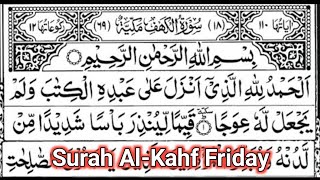 اٰیَاتُهَا ١١٠ (١٨) سُوْرَةُ الْكَهْفِ مَكِّیَّةٌ (٦٩) رُكُوْعَاتُهَا ١٢
بِسْمِ اللّٰهِ الرَّحْمٰنِ الرَّحِیْمِ
اَلْحَمْدُ لِلّٰهِ الَّذِیْۤ اَنْزَلَ عَلٰی عَبْدِهِ الْكِتٰبَ وَلَمْ
یَجْعَلْ لَّهٗ عِوَجًا ۜ ١ قَیِّمًا لِّیُنْذِرَ بَاْسًا شَدِیْدًا مِّنْ
لَّدُنْهُ
Surah Al-Kahf Friday